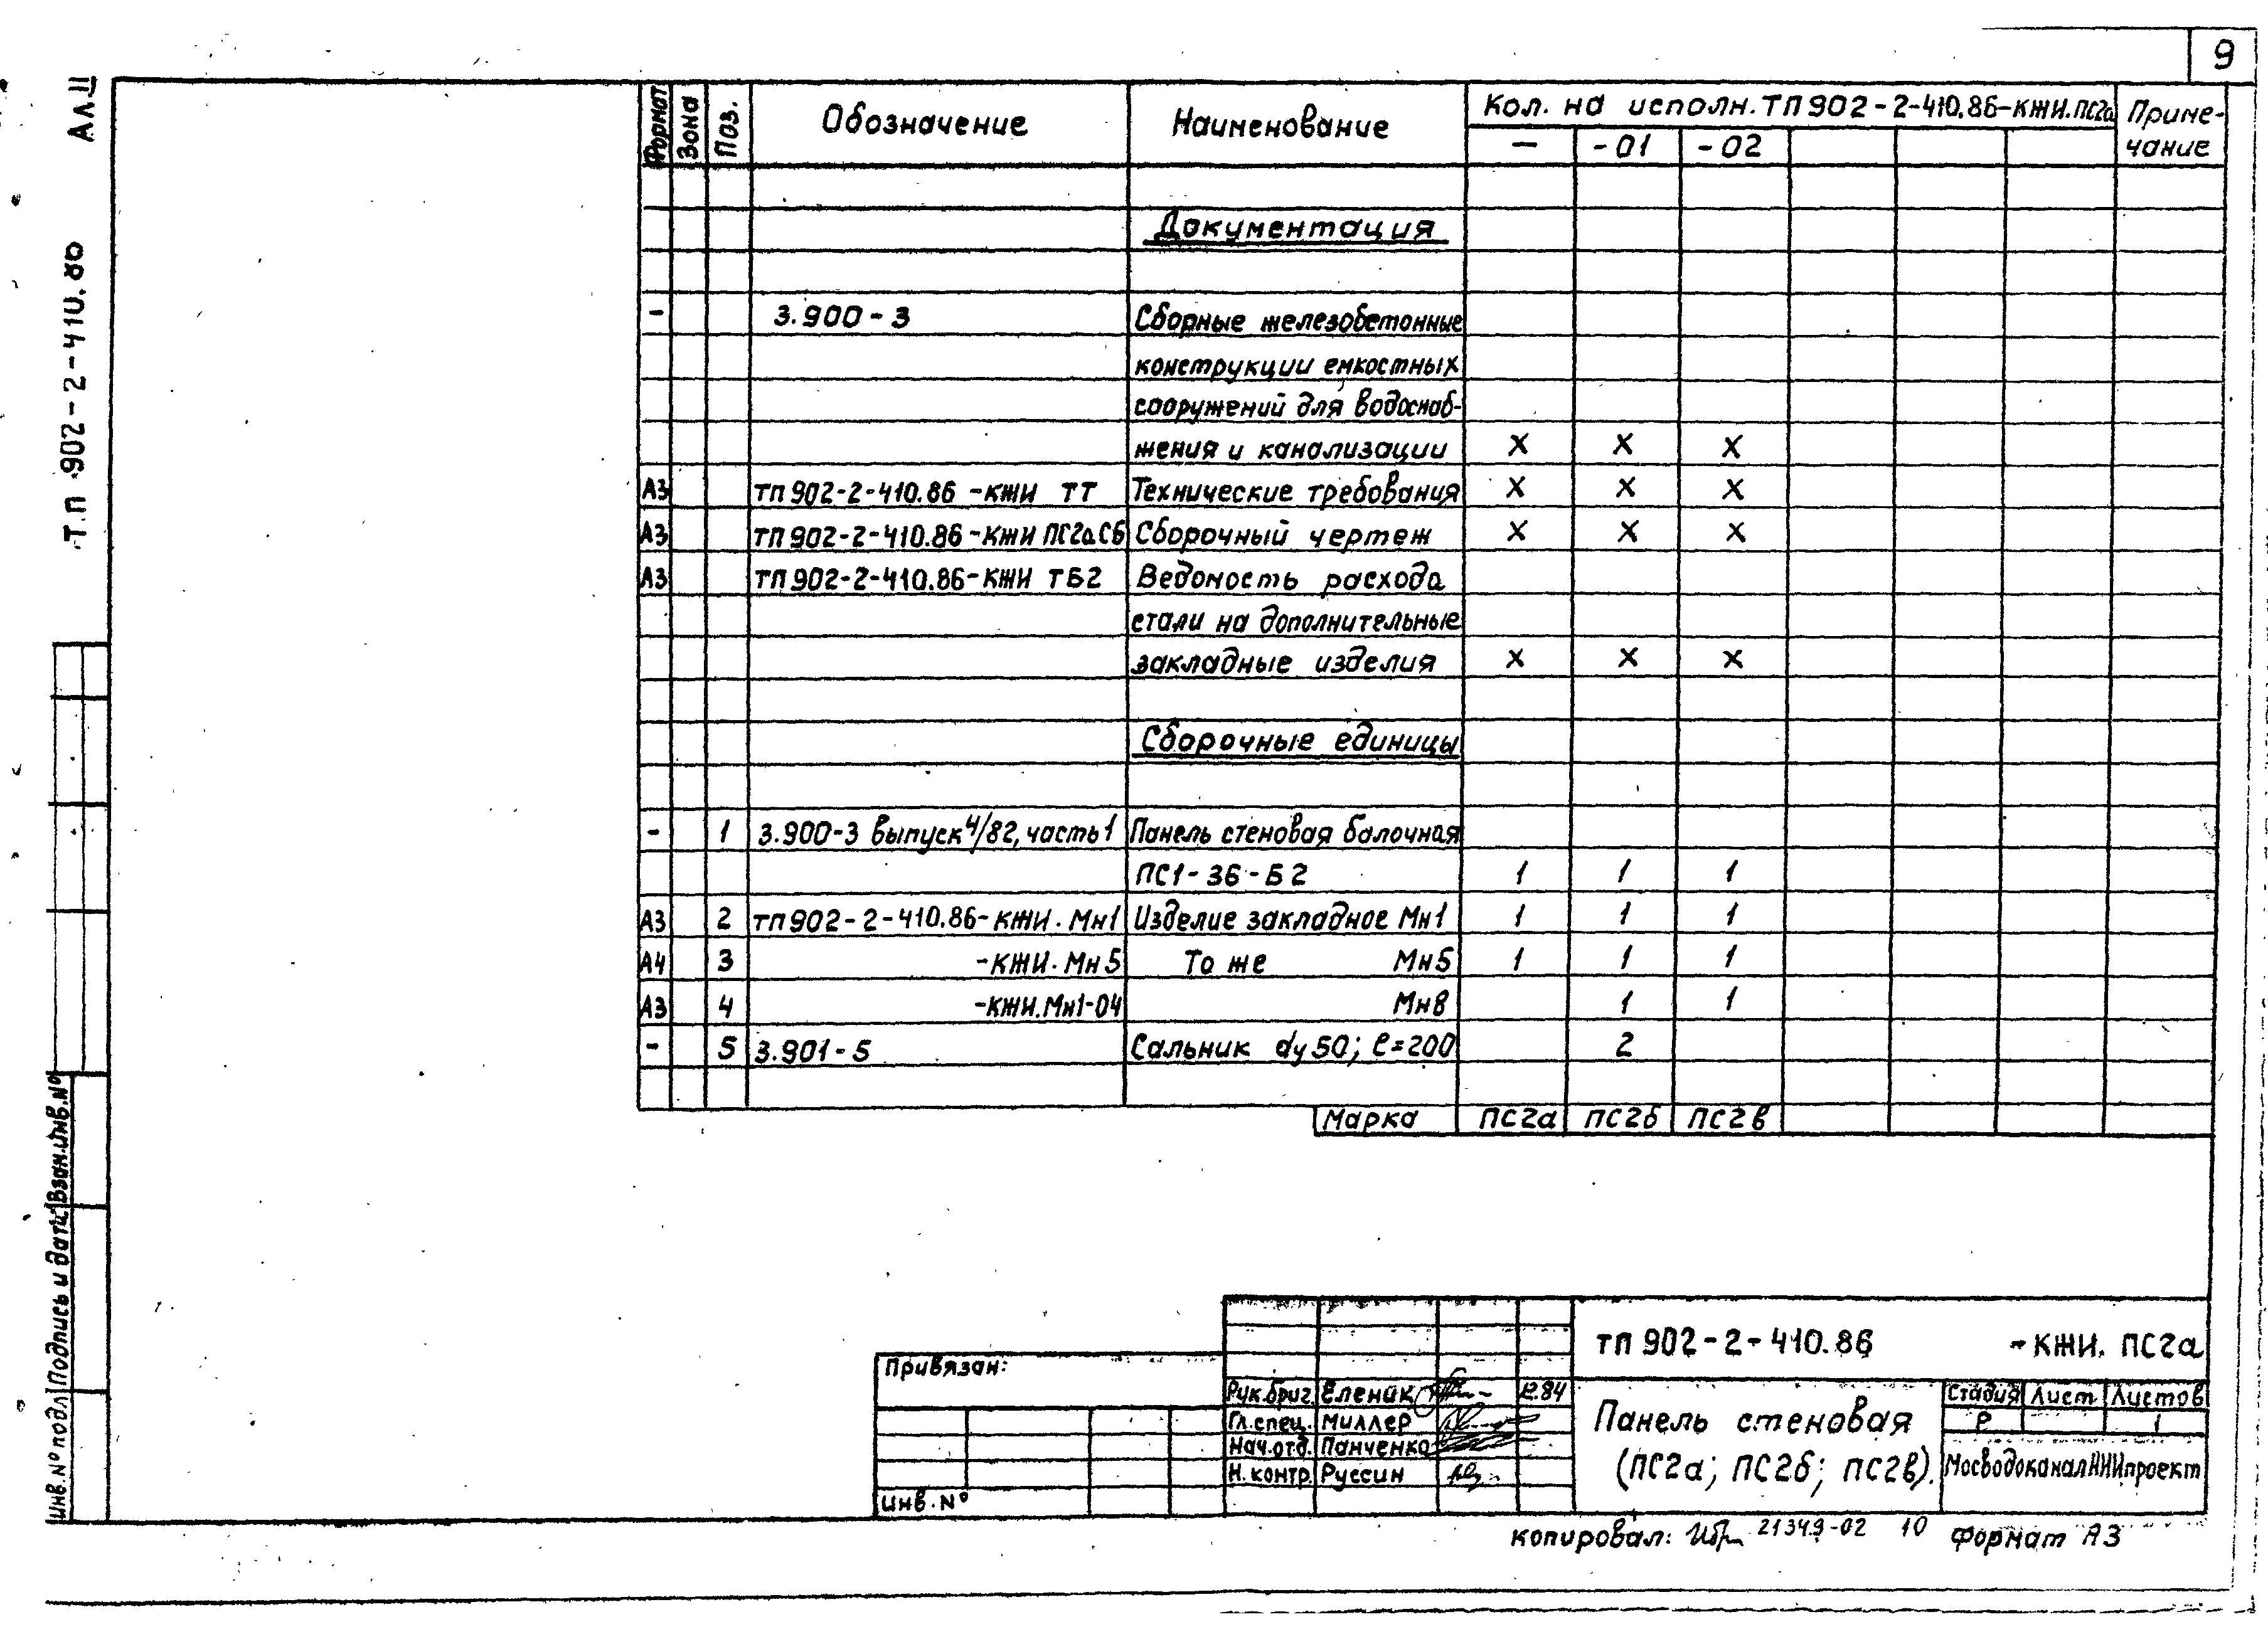 9
Ал.II
Т.П 902-2-410.86
Формат Зона Поз. Обозначение Наименование Кол. на исполн. ТП 902-2-410.86-КЖИ.ПС2а Приме-
— -01 -02 чание
Документация
- 3.900-3 Сборные железобетонные
конструкции емкостных
сооружений для водоснаб-
жения и канализации X X X
А3 ТП 902-2-410.86 -КЖИ ТТ Технические требования X X X
А3 ТП 902-2-410.86-КЖИ ПС2а СБ Сборочный чертеж X X X
А3 ТП 902-2-410.86-КЖИ ТБ2 Ведомость расхода
стали на дополнительные
закладные изделия X X X
Сборочные единицы
- 1 3.900-3 выпуск 4/82, часть 1 Панель стеновая балочная
ПС1-36-Б2 1 1 1
А3 2 ТП 902-2-410.86-КЖИ.Мн1 Изделие закладное Мн1 1 1 1
А4 3 -КЖИ.Мн5 То же Мн5 1 1 1
А3 4 -КЖИ.Мн1-04 Мн8 1 1
- 5 3.901-5 Сальник dу50; ℓ=200 2
Марка ПС2а ПС2б ПС2в
Инв.№ подл Подпись и дата Взам.инв.№
ТП 902-2-410.86 -КЖИ. ПС2а
Привязан:
Рук.бриг. Еленик 12.84
Гл.спец. Миллер
Нач.отд. Панченко
Н.контр. Руссин
Инв.№
Панель стеновая
(ПС2а; ПС2б; ПС2в).
Стадия Лист Листов
Р 1
МосводоканалНИИпроект
копировал: 21349-02 10 Формат А3